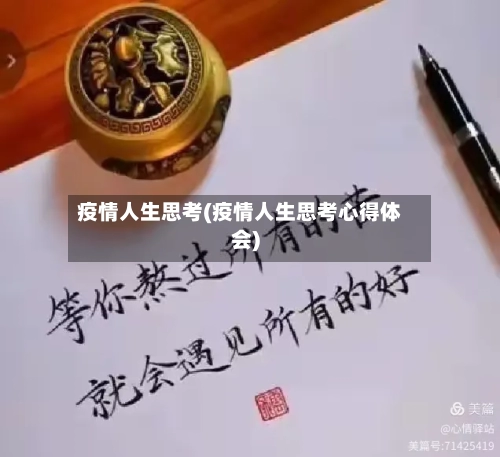 疫情人生思考(疫情人生思考心得体
会)
等你熬过所有的苦
就会遇见所有的好
美篇
@心情驿站
美篇号:71425419